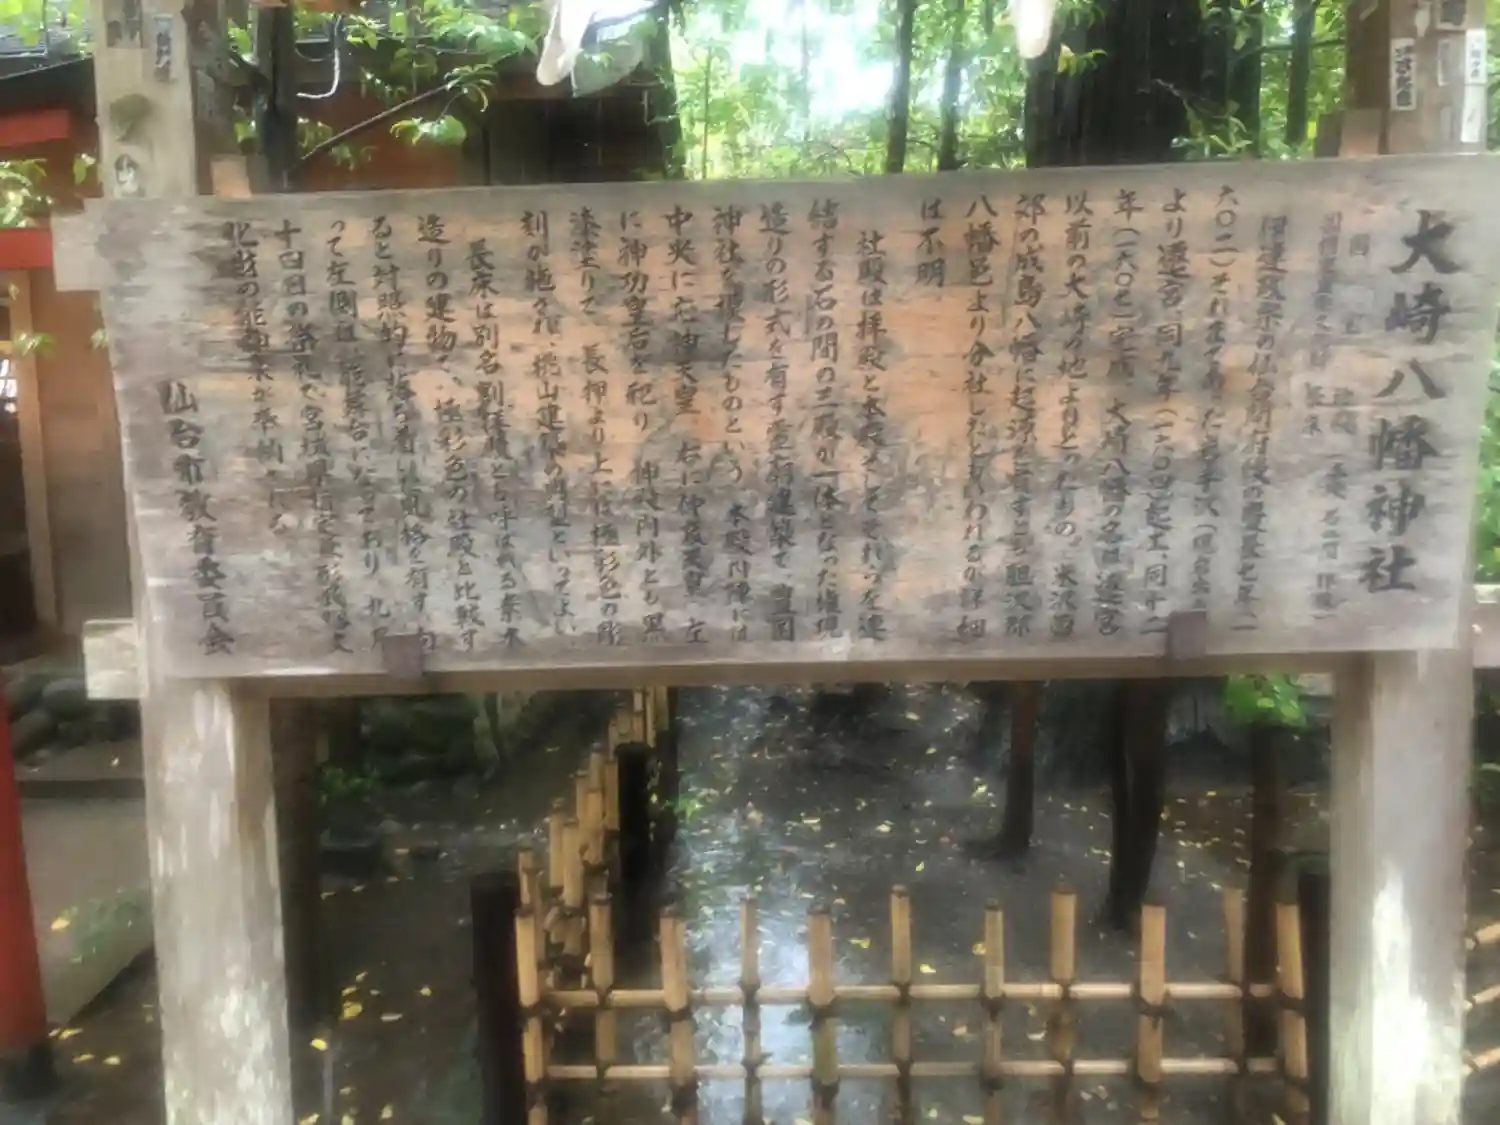 大崎八幡神社
国宝
社殿 一棟
長床
伊達政宗の仏台開府後の慶長七年(一
六〇二)それまであった岩手沢
より遷宮、同九年(一六〇四)起工、同十二
年(一六〇七)完成。大崎八幡の名は遷宮
以前の大崎の地よりとったもの。米沢西
郊の成島八幡に起源を有すとも胆沢郡
八幡邑より分社したともいわれるが詳細
は不明
社殿は拝殿と本殿そしてそれらを連
結する石の間の三殿が一体となった権現
造りの形式を有す霊廟建築で、豊国
神社を模したものという。本殿内陣には
中央に応神天皇、右に仲哀天皇、左
に神功皇后を祀り、神殿内外とも黒
漆塗りで、長押より上には極彩色の彫
刻が施され、桃山建築の典型といってよい
長床は別名割拝殿とも呼ばれる素木
造りの建物で、極彩色の社殿と比較す
ると対照的に落ち着いた風格を有す。向
って左側は能舞台になっており、九月
十四日の祭礼で宮城県指定無形
の能神楽が奉納される
仙台市教育委員会